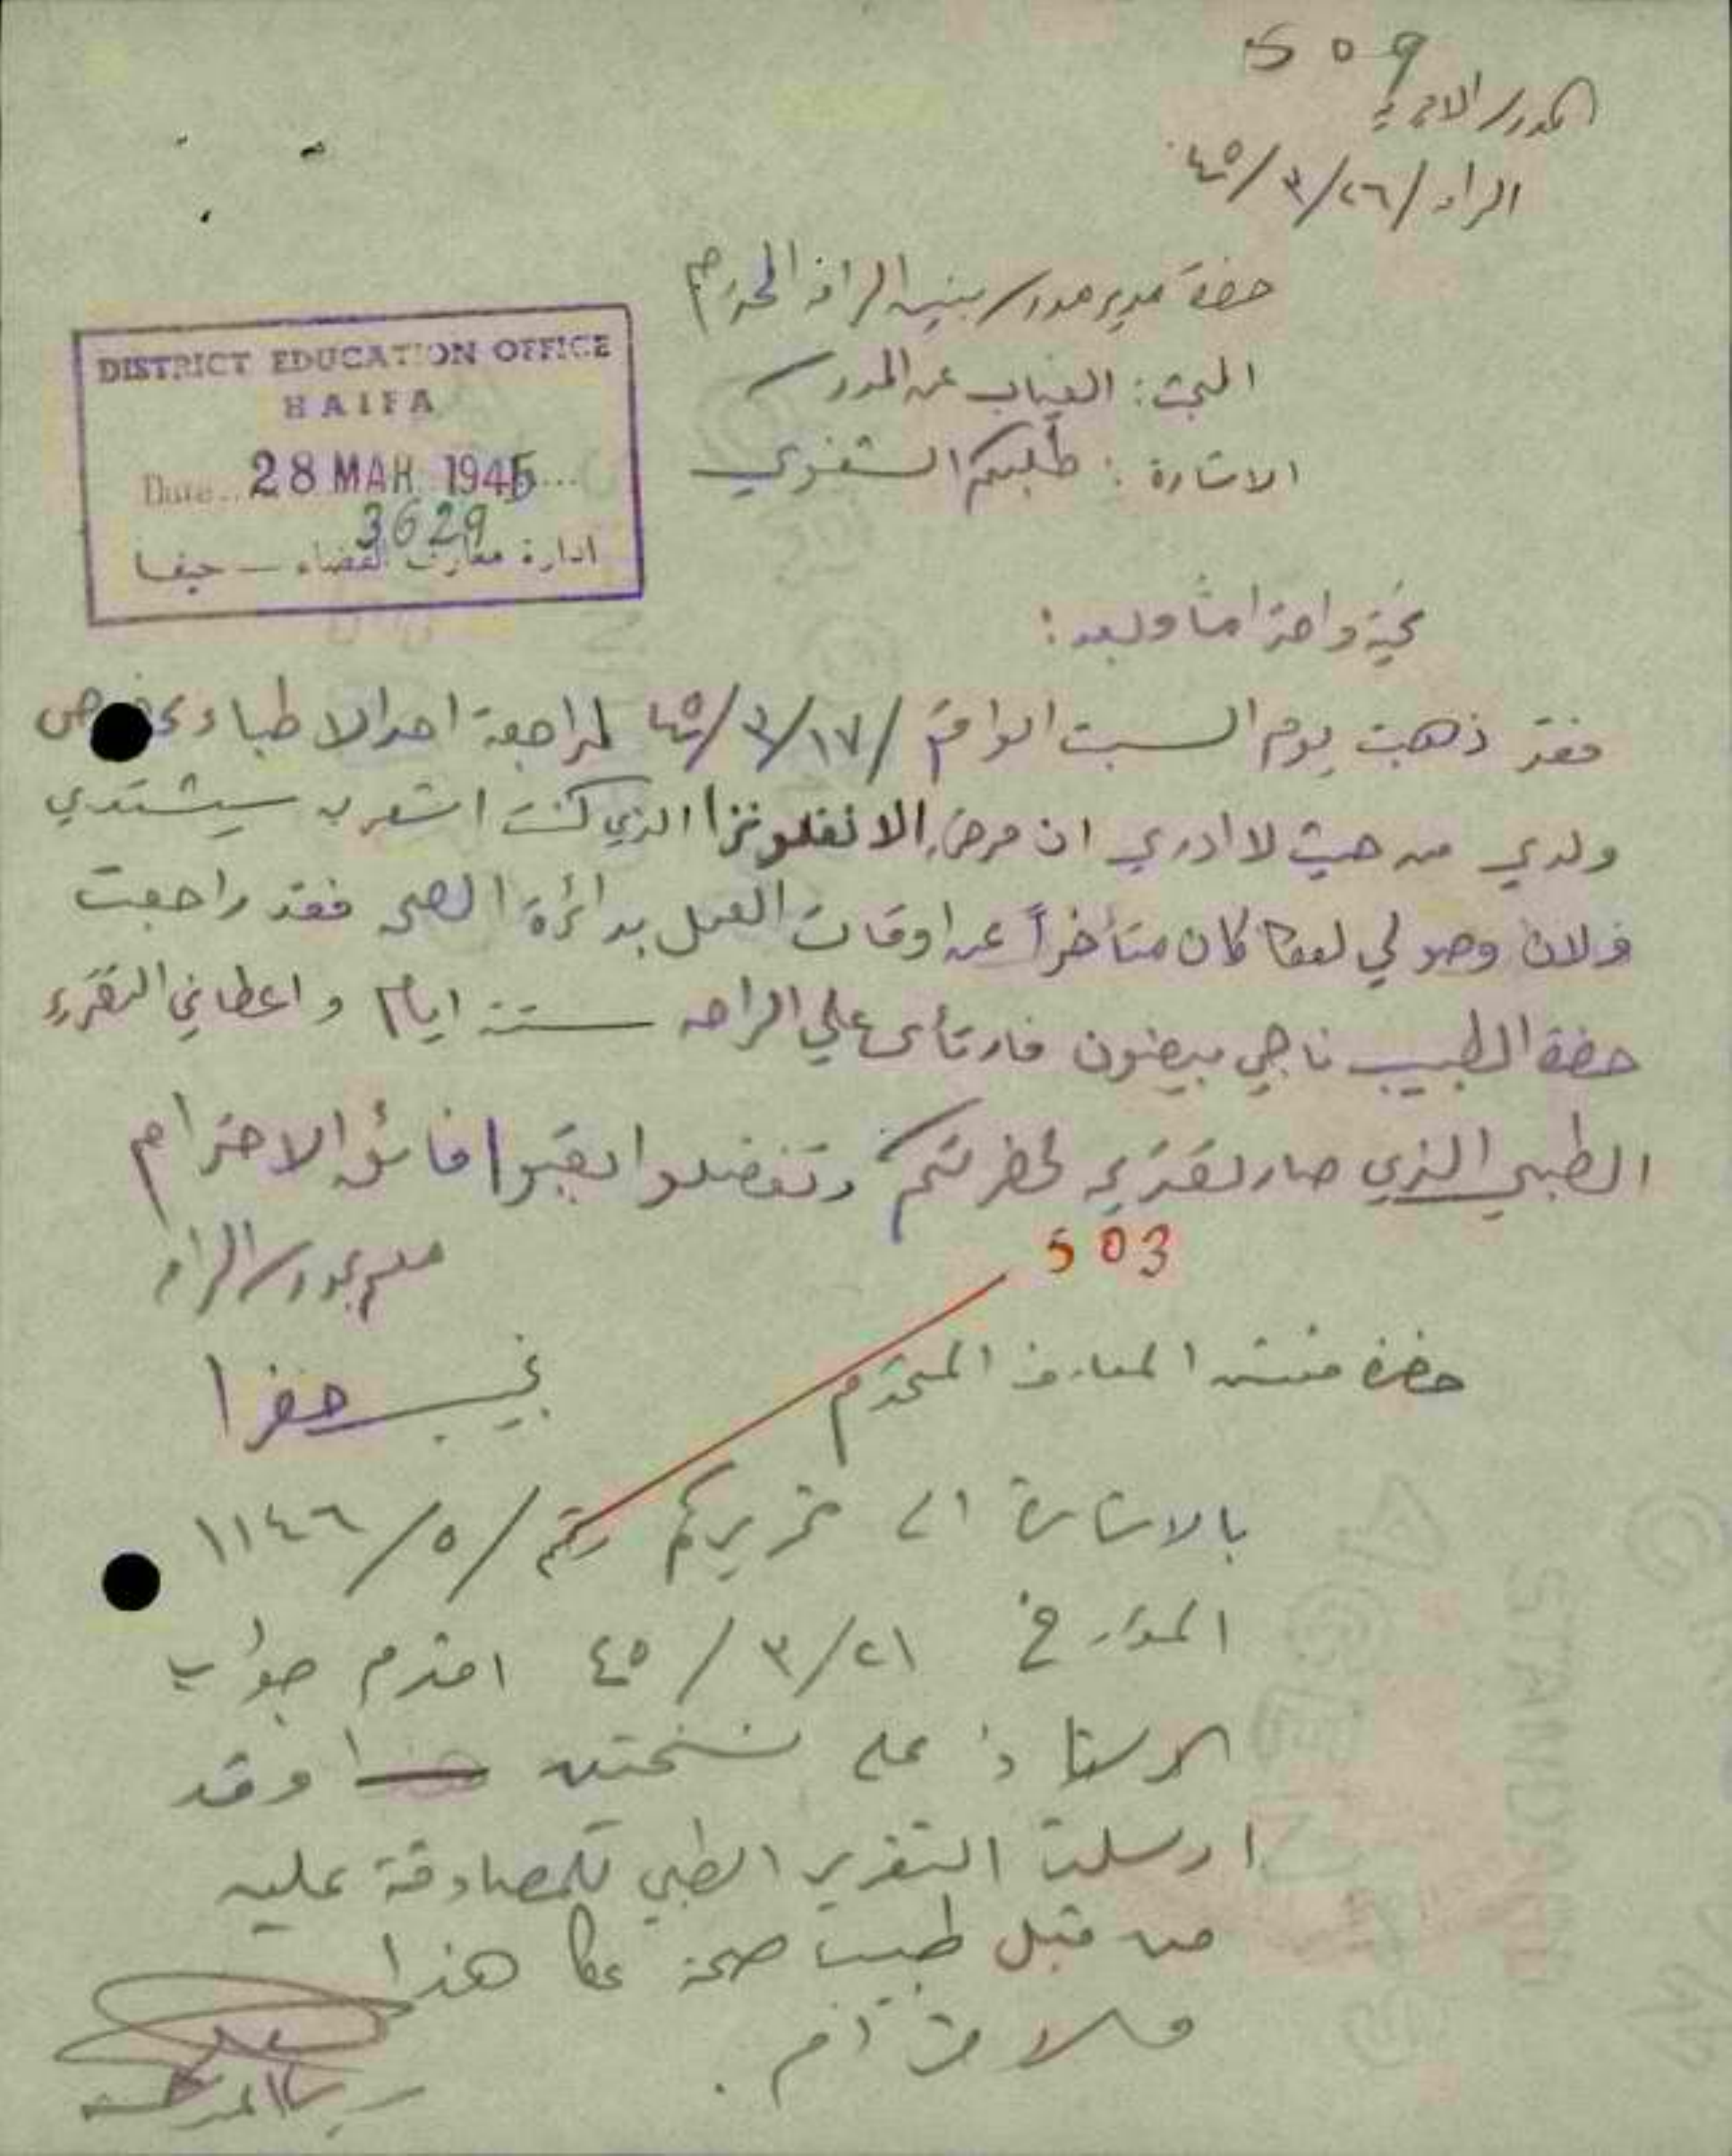 509
المدرسة الاميرية
الرامه / ٢٦/٣/٤٥
حضرة مدير مدرسة بنين الرامه المحترم
البحث: الغياب عن المدرسة
الاشارة: طلبكم الشفوي
DISTRICT EDUCATION OFFICE
HAIFA
Date 28 MAR 1945
3629
ادارة معارف القضاء - حيفا
تحية واحتراماً وبعد:
فقد ذهبت يوم السبت الواقع / ١٧/٣/٤٥ لمراجعة احد الاطباء بخصوص
ولدي من حيث لا ادري ان مرض الانفلونزا الذي كنت اشعر به سيشتد بي
ولان وصولي لعكا كان متأخراً عن اوقات العمل بدائرة الصحه فقد راجعت
حضرة الطبيب ناجي بيضون فارتأى علي الراحه ستة ايام واعطاني التقرير
الطبي الذي صار تقديمه لحضرتكم وتفضلوا بقبول فائق الاحترام
معلم بمدرسة الرامه
نجيب
503
حضرة مفتش المعارف المحترم
بالاشارة الى تحريركم رقم / ٥ / ١١٤٦
المؤرخ ٢١/٣/٤٥ اقدم جواب
الاستاذ على نسختين وقد
ارسلت التقرير الطبي للمصادقة عليه
من قبل طبيب صحة عكا هذا
والاحترام.